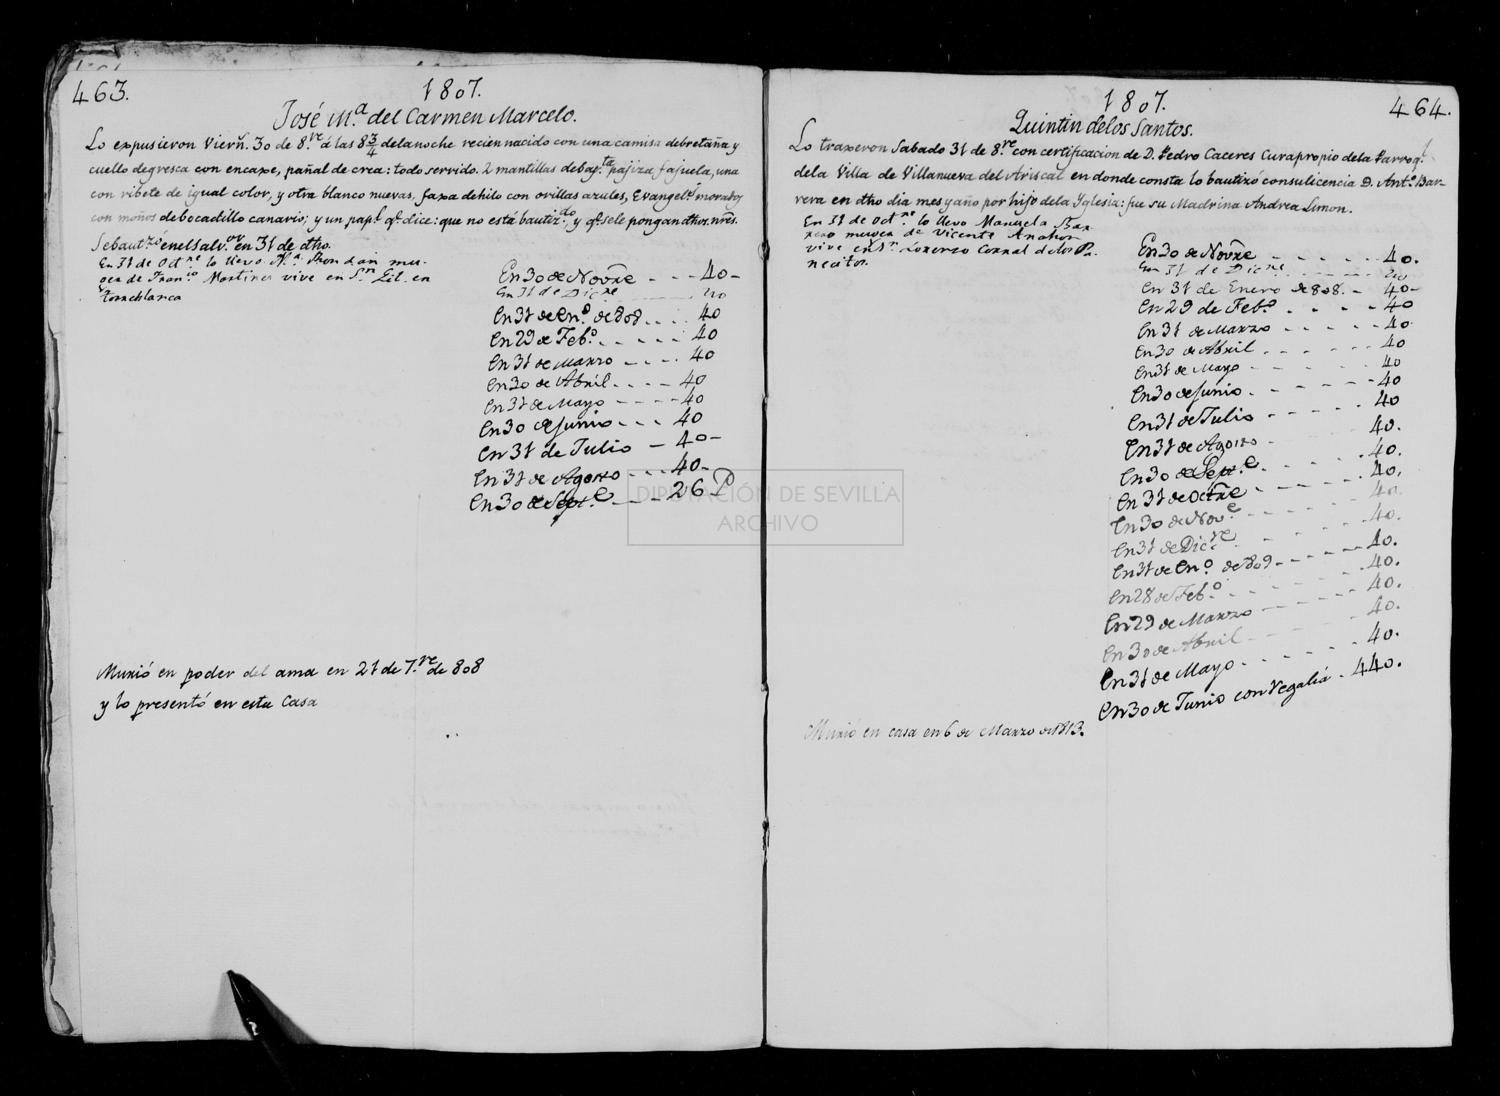 463.
1807.
José M.ª del Carmen Marcelo.
Lo expusieron Viern.s 30 de 8.re á las 8 3/4 delanoche recien nacido con una camisa debretaña y
cuello degresca con encaxe, pañal de crea: todo servido. 2 mantillas debay.ta pajiza, una
con ribete de igual color, y otra blanco nuevas, faxa dehilo con orillas azules, Evangel.s morados
con moños debocadillo canario; y un pap.l q.e dice: que no está bautiz.do y q.e sele pongan dhos. nres.
Sebautzó enelSalv.or en 31 de dho.
En 31 de Oct.re lo llevo M.a Rondan mu-
ger de Fran.co Martines vive en S.n Gil en
torreblanca
En 30 de Novre - - - 40 -
En 31 de Dicre 40
En 31 de En.o de 808 . . . 40
En 29 de Feb.o . . . . . 40
En 31 de Marzo - - - . 40
En 30 de Abril . . - - 40
En 31 de Mayo - - - - 40
En 30 de Junio - - - 40
En 31 de Julio - 40 -
En 31 de Agosto - - - 40 -
En 30 de Sept.e - - - 26 P
Murió en poder del ama en 21 de 7.re de 808
y lo presentó en esta Casa
1807.
464.
Quintin delos Santos.
Lo traxeron Sabado 31 de 8.re con certificacion de D. Pedro Caceres Curapropio dela Parroq.l
dela Villa de Villanueva del Ariscal en donde consta lo bautizó consulicencia D. Ant.o Bar-
rera en dho dia mes y año por hijo dela Yglesia: fue su Madrina Andrea Limon.
En 31 de Oct.re lo llevo Manuela Bar-
rero muger de Vicente
vive en S.n Lorenzo Corral delos Pa-
necitos.
En 30 de Novre - - - - - 40.
En 31 de Dicre 40
En 31 de Enero de 808. - 40 -
En 29 de Feb.o . . . - - 40
En 31 de Marzo - - - - 40
En 30 de Abril . - - - . 40
En 31 de Mayo - - - - 40
En 30 de Junio . - - - - 40
En 31 de Julio - - - - 40
En 31 de Agosto - 40.
En 30 de Sept.e . - - - . 40.
En 31 de Octre - - - - 40.
En 30 de Nov.e - - - - 40.
En 31 de Dic.re - - - 40.
En 31 de En.o de 809 - - - - 40.
En 28 de Feb.o - - - - 40.
En 29 de Marzo - - - - 40.
En 30 de Abril - - - 40.
En 31 de Mayo - - - - . 40.
En 30 de Junio con regalia . 440.
Murió en casa en 6 de Marzo de 1813.
DIPUTACIÓN DE SEVILLA
ARCHIVO